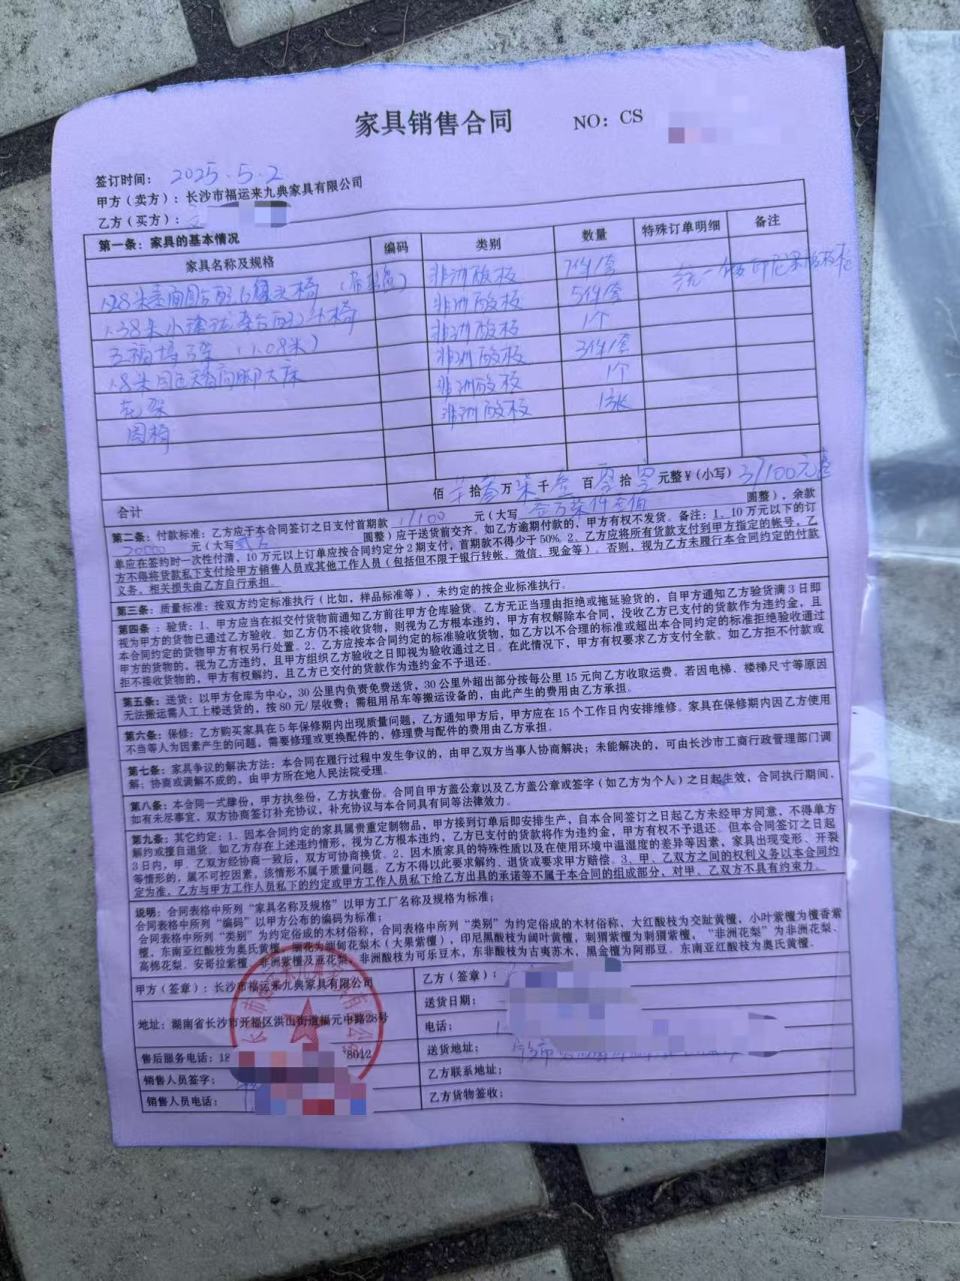 家具销售合同
NO：CS
签订时间： 2025.5.2
甲方（卖方）：长沙市福运来九典家具有限公司
乙方（买方）：
第一条：家具的基本情况
家具名称及规格 编码 类别 数量 特殊订单明细 备注
非洲酸枝 7件/套
1.38米小 非洲酸枝 5件/套
(1.08米) 非洲酸枝 1个
1.8米 大床 非洲酸枝 3件/套
花架 非洲酸枝 1个
圈椅 非洲酸枝 1张
合计 佰 拾叁万柒千壹百零拾零元整￥（小写） 37100元整
第二条：付款标准：乙方应于本合同签订之日支付首期款 17100 元（大写 圆整），余款
20000 元（大写 圆整）应于送货前交齐，如乙方逾期付款的，甲方有权不发货。备注：1、10万元以下的订
单应在签约时一次性付清，10万元以上订单应按合同约定分2期支付，首期款不得少于50%。2、乙方应将所有货款支付到甲方指定的账号，乙
方不得将货款私下支付给甲方销售人员或其他工作人员（包括但不限于银行转帐、微信、现金等）。否则，视为乙方未履行本合同约定的付款
义务，相关损失由乙方自行承担。
第三条：质量标准：按双方约定标准执行（比如，样品标准等），未约定的按企业标准执行。
第四条：验货：1、甲方应当在拟交付货物前通知乙方前往甲方仓库验货。乙方无正当理由拒绝或拖延验货的，自甲方通知乙方验货满3日即
视为甲方的货物已通过乙方验收。如乙方仍不接收货物，则视为乙方根本违约，甲方有权解除本合同，没收乙方已支付的货款作为违约金，且
本合同约定的货物甲方有权另行处置。2、乙方应按本合同约定的标准验收货物，如乙方以不合理的标准或超出本合同约定的标准拒绝验收通过
甲方的货物的，视为乙方违约，且甲方组织乙方验收之日即视为验收通过之日。在此情况下，甲方有权要求乙方支付全款。如乙方拒不付款或
拒不接收货物的，甲方有权解约，且乙方已支付的货款作为违约金不予退还。
第五条：送货：以甲方仓库为中心，30公里内负责免费送货，30公里外超出部分按每公里15元向乙方收取运费。若因电梯、楼梯尺寸等原因
无法搬运需人工上楼送货的，按80元/层收费；需租用吊车等搬运设备的，由此产生的费用由乙方承担。
第六条：保修：乙方购买家具在5年保修期内出现质量问题，乙方通知甲方后，甲方应在15个工作日内安排维修。家具在保修期内因乙方使用
不当等人为因素产生的问题，需要修理或更换配件的，修理费与配件的费用由乙方承担。
第七条：家具争议的解决方法：本合同在履行过程中发生争议的，由甲乙双方当事人协商解决；未能解决的，可由长沙市工商行政管理部门调
解；协商或调解不成的，由甲方所在地人民法院受理。
第八条：本合同一式肆份，甲方执叁份，乙方执壹份。合同自甲方盖公章以及乙方盖公章或签字（如乙方为个人）之日起生效，合同执行期间，
如有未尽事宜，双方协商签订补充协议，补充协议与本合同具有同等法律效力。
第九条：其它约定：1、因本合同约定的家具属贵重定制物品，甲方接到订单后即安排生产，自本合同签订之日起乙方未经甲方同意，不得单方
解约或擅自退货。如乙方存在上述违约情形，视为乙方根本违约，乙方已支付的货款将作为违约金，甲方有权不予退还。但本合同签订之日起
3日内，甲、乙双方经协商一致后，双方可协商换货。2、因木质家具的特殊性质以及在使用环境中温湿度的差异等因素，家具出现变形、开裂
等情形的，属不可控因素，该情形不属于质量问题。乙方不得以此要求解约、退货或要求甲方赔偿。3、甲、乙双方之间的权利义务以本合同约
定为准，乙方与甲方工作人员私下的约定或甲方工作人员私下给乙方出具的承诺等不属于本合同的组成部分，对甲、乙双方不具有约束力。
说明：合同表格中所列“家具名称及规格”以甲方工厂名称及规格为标准；
合同表格中所列“编码”以甲方公布的编码为标准；
合同表格中所列“类别”为约定俗成的木材俗称，大红酸枝为交趾黄檀，小叶紫檀为檀香紫
檀，东南亚红酸枝为奥氏黄檀，缅花为缅甸花梨木（大果紫檀），印尼黑酸枝为阔叶黄檀，刺猬紫檀为刺猬紫檀，“非洲花梨”为非洲花梨、
高棉花梨、安哥拉紫檀、非洲紫檀及亚花梨，非洲酸枝为可乐豆木，东非酸枝为古夷苏木，黑金檀为阿那豆．东南亚红酸枝为奥氏黄檀．
甲方（签章）：长沙市福运来九典家具有限公司 乙方（签章）：
送货日期：
地址：湖南省长沙市开福区洪山街道福元中路28号 电话：
送货地址：
售后服务电话：18 8012 乙方联系地址：
销售人员签字： 乙方货物签收：
销售人员电话：